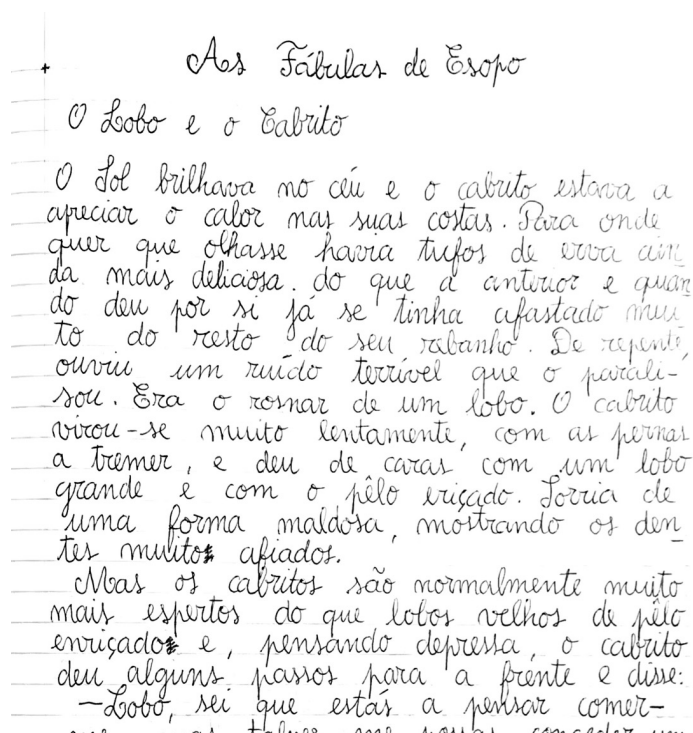 As Fábulas de Esopo
O Lobo e o Cabrito
O Sol brilhava no céu e o cabrito estava a
apreciar o calor nas suas costas. Para onde
quer que olhasse havia tufos de erva ain
da mais deliciosa. do que a anterior e quan
do deu por si já se tinha afastado mui
to do resto do seu rebanho. De repente,
ouviu um ruído terrível que o parali-
sou. Era o rosnar de um lobo. O cabrito
virou-se muito lentamente, com as pernas
a tremer, e deu de caras com um lobo
grande e com o pêlo eriçado. Sorria de
uma forma maldosa, mostrando os den
tes muito afiados.
Mas os cabritos são normalmente muito
mais espertos do que lobos velhos de pêlo
enriçado e, pensando depressa, o cabrito
deu alguns passos para a frente e disse:
-Lobo, sei que estás a pensar comer-
talvez me possas conceder um